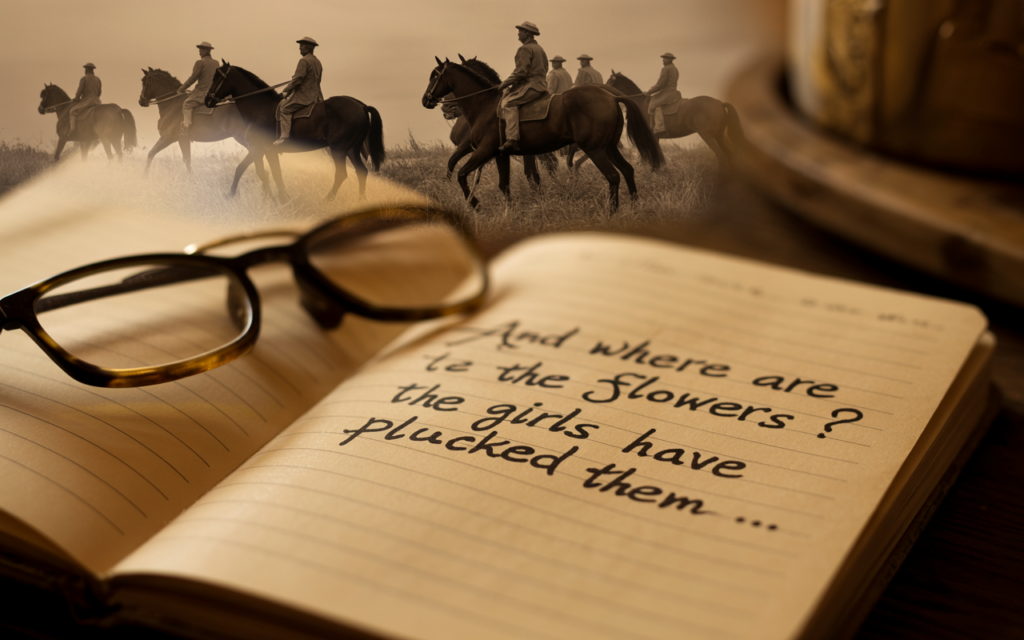 And where are
te the flowers ?
the girls have
plucked them ...